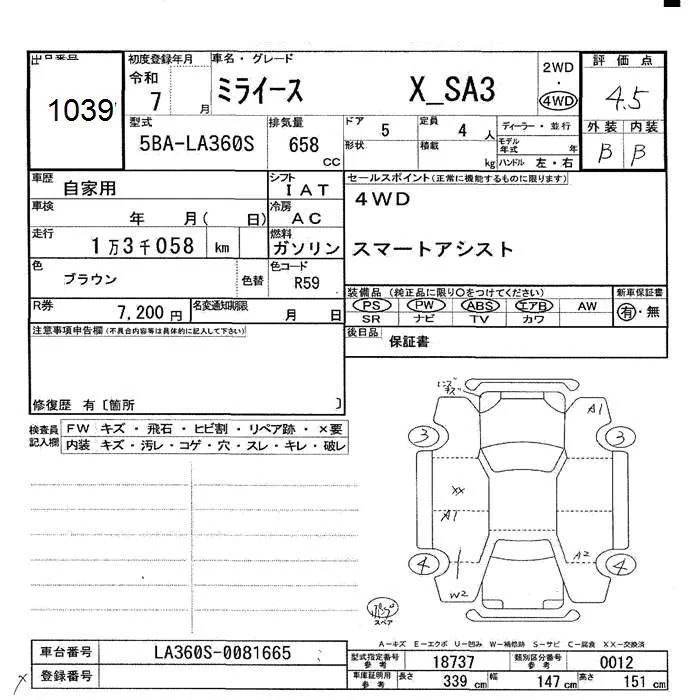 出品番号 初度登録年月 車名・グレード 2WD 評価点
1039 令和 7 月 ミライース X_SA3 ・ 4WD 4.5
型式 排気量 ドア 定員 ディーラー・並行 外装 内装
5BA-LA360S 658 CC 5 4 人 B B
形状 積載 kg モデル年式 年
ハンドル 左・右
車歴 自家用 シフト IAT セールスポイント(正常に機能するものに限ります)
車検 年 月( 日) 冷房 AC 4WD
走行 1万3千058 km 燃料 ガソリン スマートアシスト
色 ブラウン 色替 色コード R59
装備品 (純正品に限り○をつけてください) 新車保証書
R券 7,200円 名変通知期限 月 日 PS PW ABS エアB AW 有・無
SR ナビ TV カワ
注意事項申告欄(不具合内容等は具体的に記入して下さい) 後日品 保証書
修復歴 有〔箇所 〕
検査員記入欄 FW キズ・飛石・ヒビ割・リペア跡・×要
内装 キズ・汚レ・コゲ・穴・スレ・キレ・破レ
A1
3 3
XX
A1
4 A2 4
W2
スペア
A-キズ E-エクボ U-凹み W-補修跡 S-サビ C-腐食 XX-交換済
車台番号 LA360S-0081665 型式指定番号 参考 18737 類別区分番号 参考 0012
登録番号 車庫証明用 参考 長さ 339 cm 幅 147 cm 高さ 151 cm